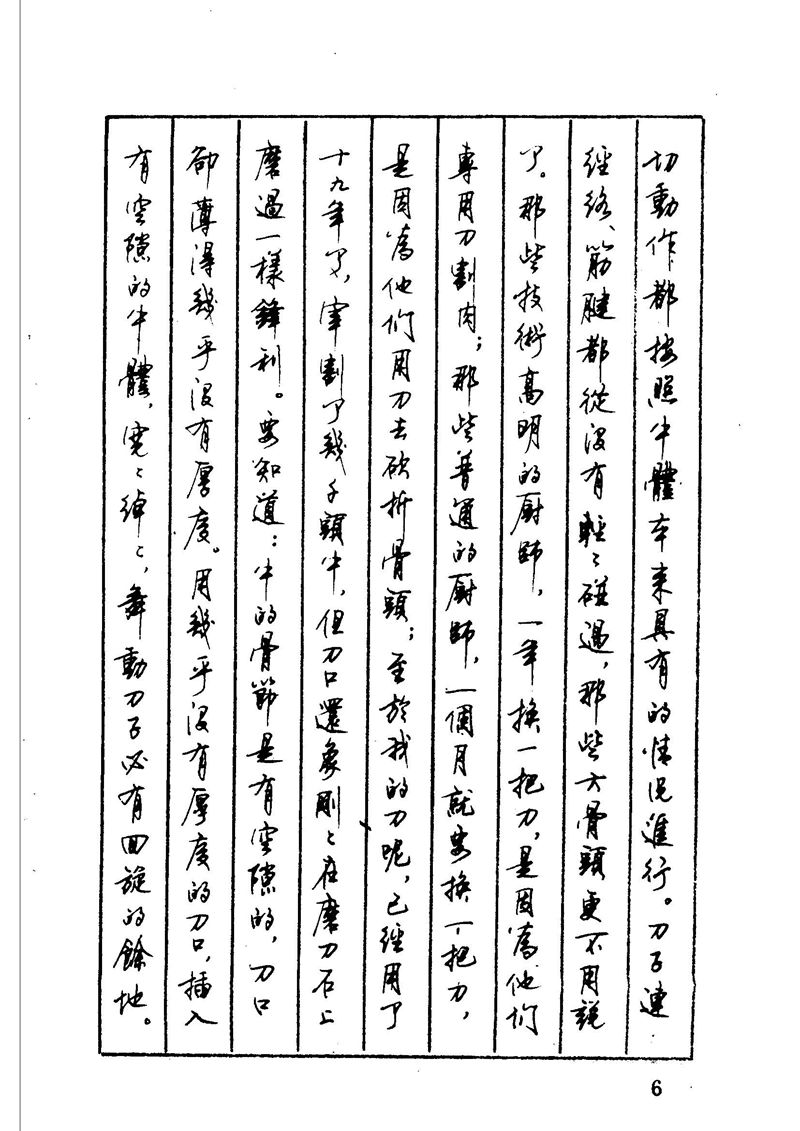 切動作都按照牛體本來具有的情況進行。刀子連
經絡、筋腱都從沒有輕〻碰過，那些大骨頭更不用說
了。那些技術高明的厨師，一年換一把刀，是因為他們
專用刀割肉；那些普通的厨師，一個月就要換一把刀，
是因為他們用刀去砍折骨頭；至於我的刀呢，已經用了
十九年了，宰割了幾千頭牛，但刀口還象剛〻在磨刀石上
磨過一樣鋒利。要知道：牛的骨節是有空隙的，刀口
卻薄得幾乎沒有厚度。用幾乎沒有厚度的刀口，插入
有空隙的牛體，寬〻綽〻，舞動刀子必有回旋的餘地。
6